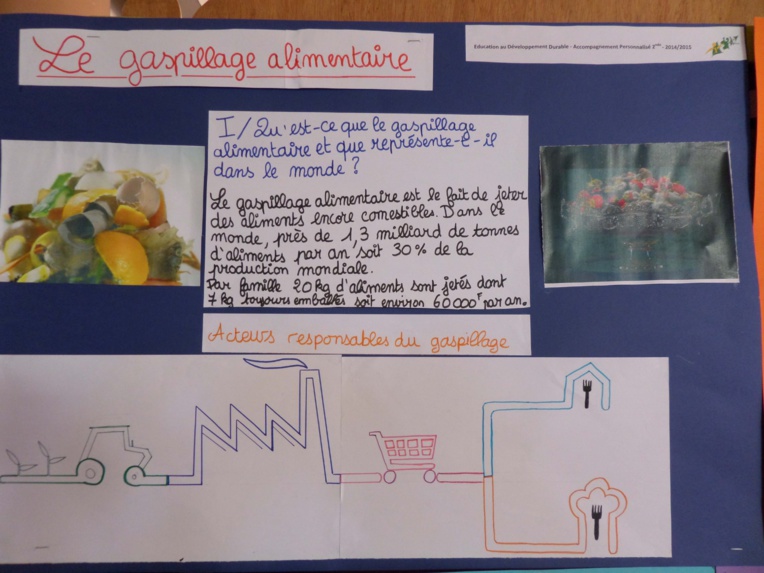 Le gaspillage alimentaire
Education au Développement Durable - Accompagnement Personnalisé 2nde - 2014/2015
I/ Qu'est-ce que le gaspillage
alimentaire et que représente-t-il
dans le monde ?
Le gaspillage alimentaire est le fait de jeter
des aliments encore comestibles. Dans le
monde, près de 1,3 milliard de tonnes
d'aliments par an soit 30% de la
production mondiale.
Par famille 20kg d'aliments sont jetés dont
7kg toujours emballés soit environ 60000F par an.
Acteurs responsables du gaspillage